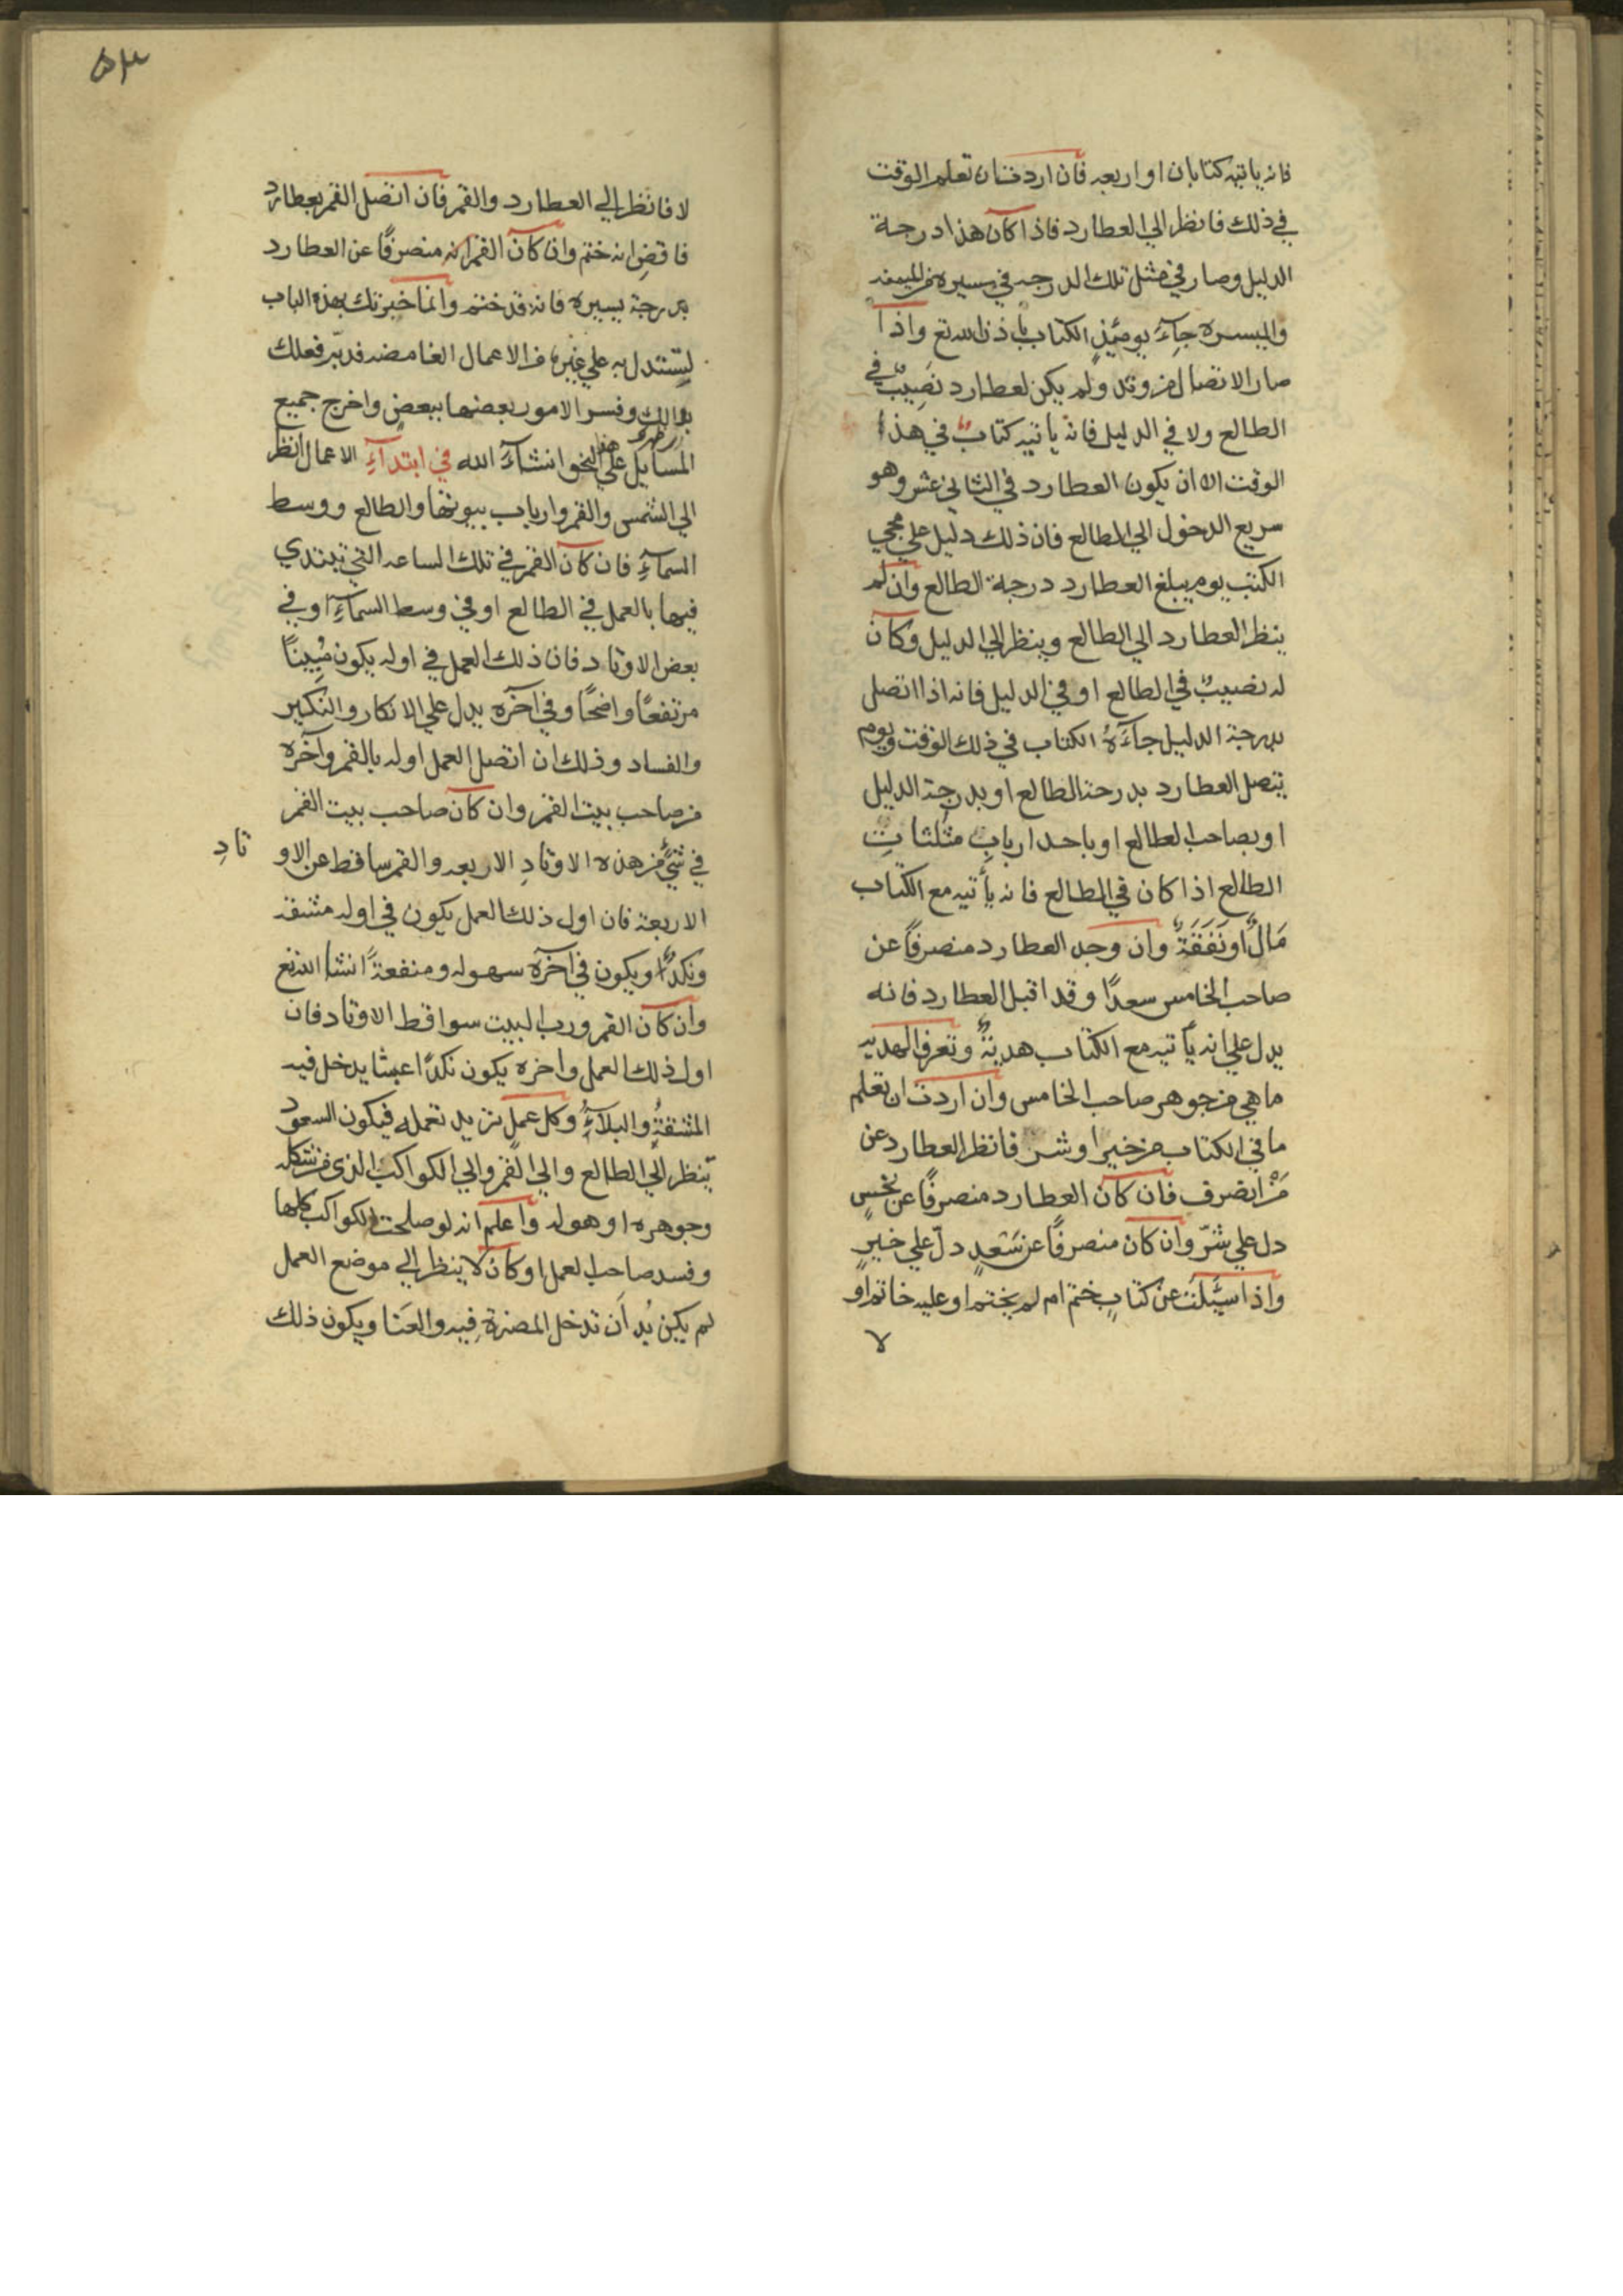 فانه ياتيه كتابان او اربعه فان اردت ان تعلم الوقت
في ذلك فانظر الي العطارد فاذا كان هذا درجة
الدليل وصار في مثل تلك الدرجه في مسيره من الميمنه
والميسره جآء يومئذٍ الكتاب باذن الله تع واذا
صار الاتصال من وتد ولم يكن لعطارد نَصِيبٌ في
الطالع ولا في الدليل فانه ياتيه كتاب في هذا
الوقت الا ان يكون العطارد في الثاني عشر وهو
سريع الدخول الي الطالع فان ذلك دليل علي مجي
الكتب يوم يبلغ العطارد درجة الطالع وان لم
ينظر العطارد الي الطالع وينظر الي الدليل وكان
له نصيبٌ في الطالع او في الدليل فانه اذا اتصل
بدرجة الدليل جآءَهُ الكتاب في ذلك الوقت ويوم
يتصل العطارد بدرجة الطالع او بدرجة الدليل
او بصاحب الطالع او باحد اربابِ مثلثاتِ
الطالع اذا كان في الطالع فانه يأتيه مع الكتاب
مَالٌ او نَفَقَةٌ وان وجد العطارد منصرفاً عن
صاحب الخامس سعدًا وقد اقبل العطارد فانه
يدل علي انه يأتيه مع الكتاب هديةٌ وتعرف الهديه
ما هي من جوهر صاحب الخامس وان اردت ان تعلم
ما في الكتاب من خير او شر فانظر العطارد عن
مَنْ انصرف فان كان العطارد منصرفًا عن نحسٍ
دل علي شرّ وان كان منصرفًا عن سَعدٍ دلّ علي خيرٍ
واذا سئَلتَ عن كتابٍ ختم ام لم يختم او عليه خاتم او
لا
٥٣
لا فانظر الي العطارد والقمر فان اتصل القمر بعطارد
فاقضِ انه ختم وان كان القمر انه منصرفًا عن العطارد
بدرجة يسيره فانه قد ختم وانما خبرتك بهذه الباب
لِتستدل به علي غيرها من الاعمال الغامضه فدبّر فعلك
بذالك وفسر الامور بعضها ببعضٍ واخرج جميع
المسايل علي هذا النحو انشآء الله في ابتدآءِ الاعمال انظر
الي الشمس والقمر وارباب بيوتها والطالع ووسط
السمآءِ فان كان القمر في تلك الساعه التي تبتدي
فيها بالعمل في الطالع او في وسط السمآءِ او في
بعض الاوتاد فان ذلك العمل في اوله يكون مُبِينًا
مرتفعًا واضحًا وفي آخره يدل علي الانكار والتكدير
والفساد وذلك ان اتصل العمل اوله بالقمر وآخره
من صاحب بيت القمر وان كان صاحب بيت القمر
في شئٍ من هذه الاوتادِ الاربعه والقمر ساقط عن الاو
تادِ
الاربعة فان اول ذلك العمل يكون في اوله مشقه
ونكدًا ويكون في آخره سهوله ومنفعةً انشا الله تع
وان كان القمر ورب البيت سواقط الاوتاد فان
اول ذلك العمل واخره يكون نكدًا عبثا يدخل فيه
المشقةُ والبلآءُ وكل عملٍ تريد تعمله فيكون السعود
ينظر الي الطالع والي القمر والي الكواكب الذي من شكله
وجوهره او هو له واعلم انه لو صلحت الكواكب كلها
وفسد صاحب العمل او كان لا ينظر الي موضع العمل
لم يكن بُد ان تدخل المضرة فيه والعَنا ويكون ذلك